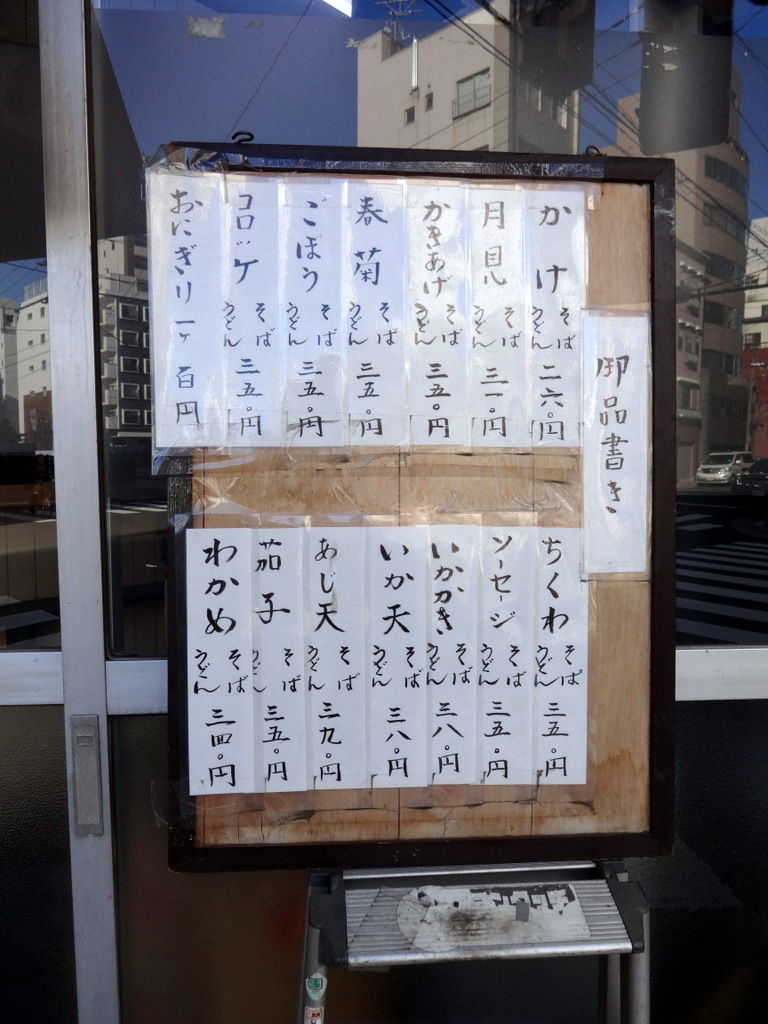 御品書き
かけ そば うどん 二六〇円
月見 そば うどん 三一〇円
かきあげ そば うどん 三五〇円
春菊 そば うどん 三五〇円
ごぼう そば うどん 三五〇円
コロッケ そば うどん 三五〇円
おにぎり 一ヶ 百円
ちくわ そば うどん 三五〇円
ソーセージ そば うどん 三五〇円
いかかき そば うどん 三八〇円
いか天 そば うどん 三八〇円
あじ天 そば うどん 三九〇円
茄子 そば うどん 三五〇円
わかめ そば うどん 三四〇円